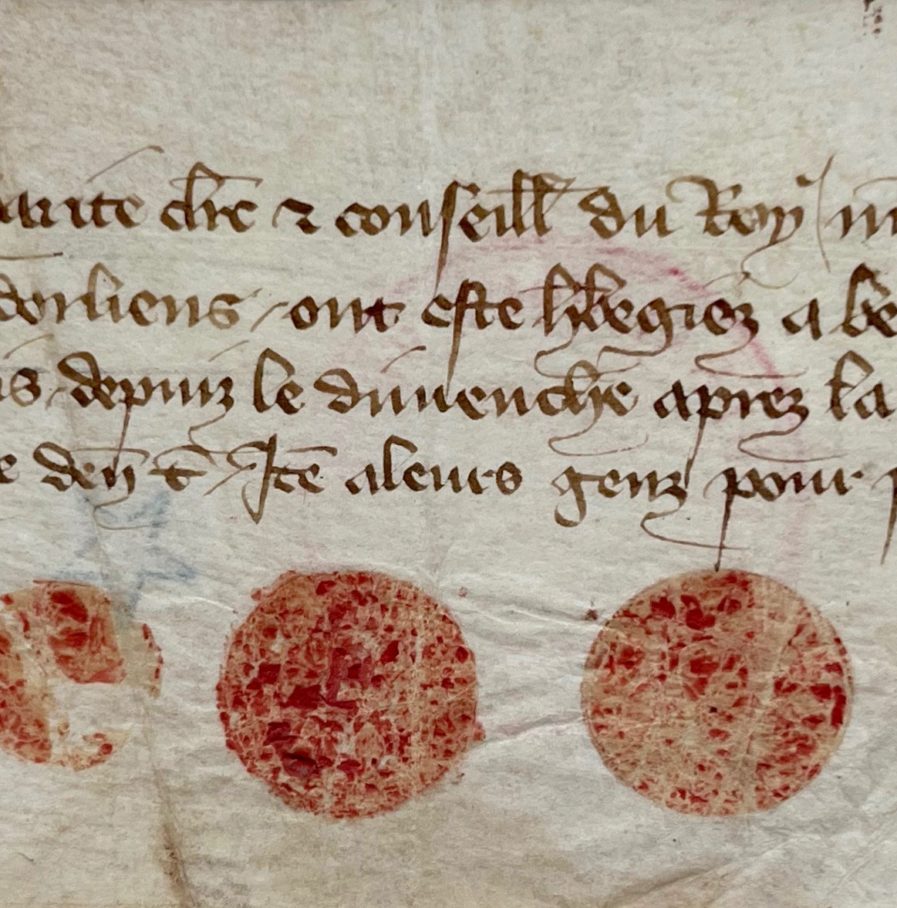 chr̄ ⁊ conseill̄ du Roy
dorliens ont este h̄begiez a be
depuiz le dimenche apres la
den̄ t̄ Itē aleurs genz pour